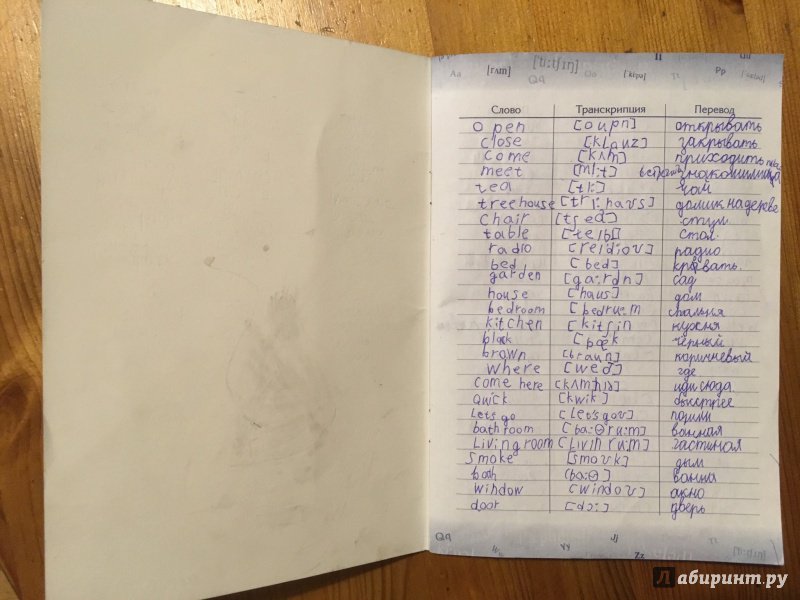 [ti:tʃɪŋ] II
Aa [rʌm] Qq Oo Tt Pp
Слово Транскрипция Перевод
open [oupn] открывать
close [klouz] закрывать
come [kʌm] приходить
meet [mi:t] знакомиться
tea [ti:] чай
treehouse [tri:haus] домик на дереве
chair [tʃeə] стул
table [teibl] стол
radio [reidiou] радио
bed [bed] кровать
garden [ga:rdn] сад
house [haus] дом
bedroom [bedru:m] спальня
kitchen [kitʃin] кухня
black чёрный
brown [braun] коричневый
where [weə] где
come here иди сюда
quick [kwik] быстрее
Lets go [let's gou] пошли
bathroom [ba:Θru:m] ванная
Living room [Livin ru:m] гастиная
smoke [smouk] дым
bath [ba:Θ] ванна
window [windou] акно
door [dɔ:] дверь
Qq Yy Jj Zz Tt [ti:tʃɪŋ]
Лабиринт.ру